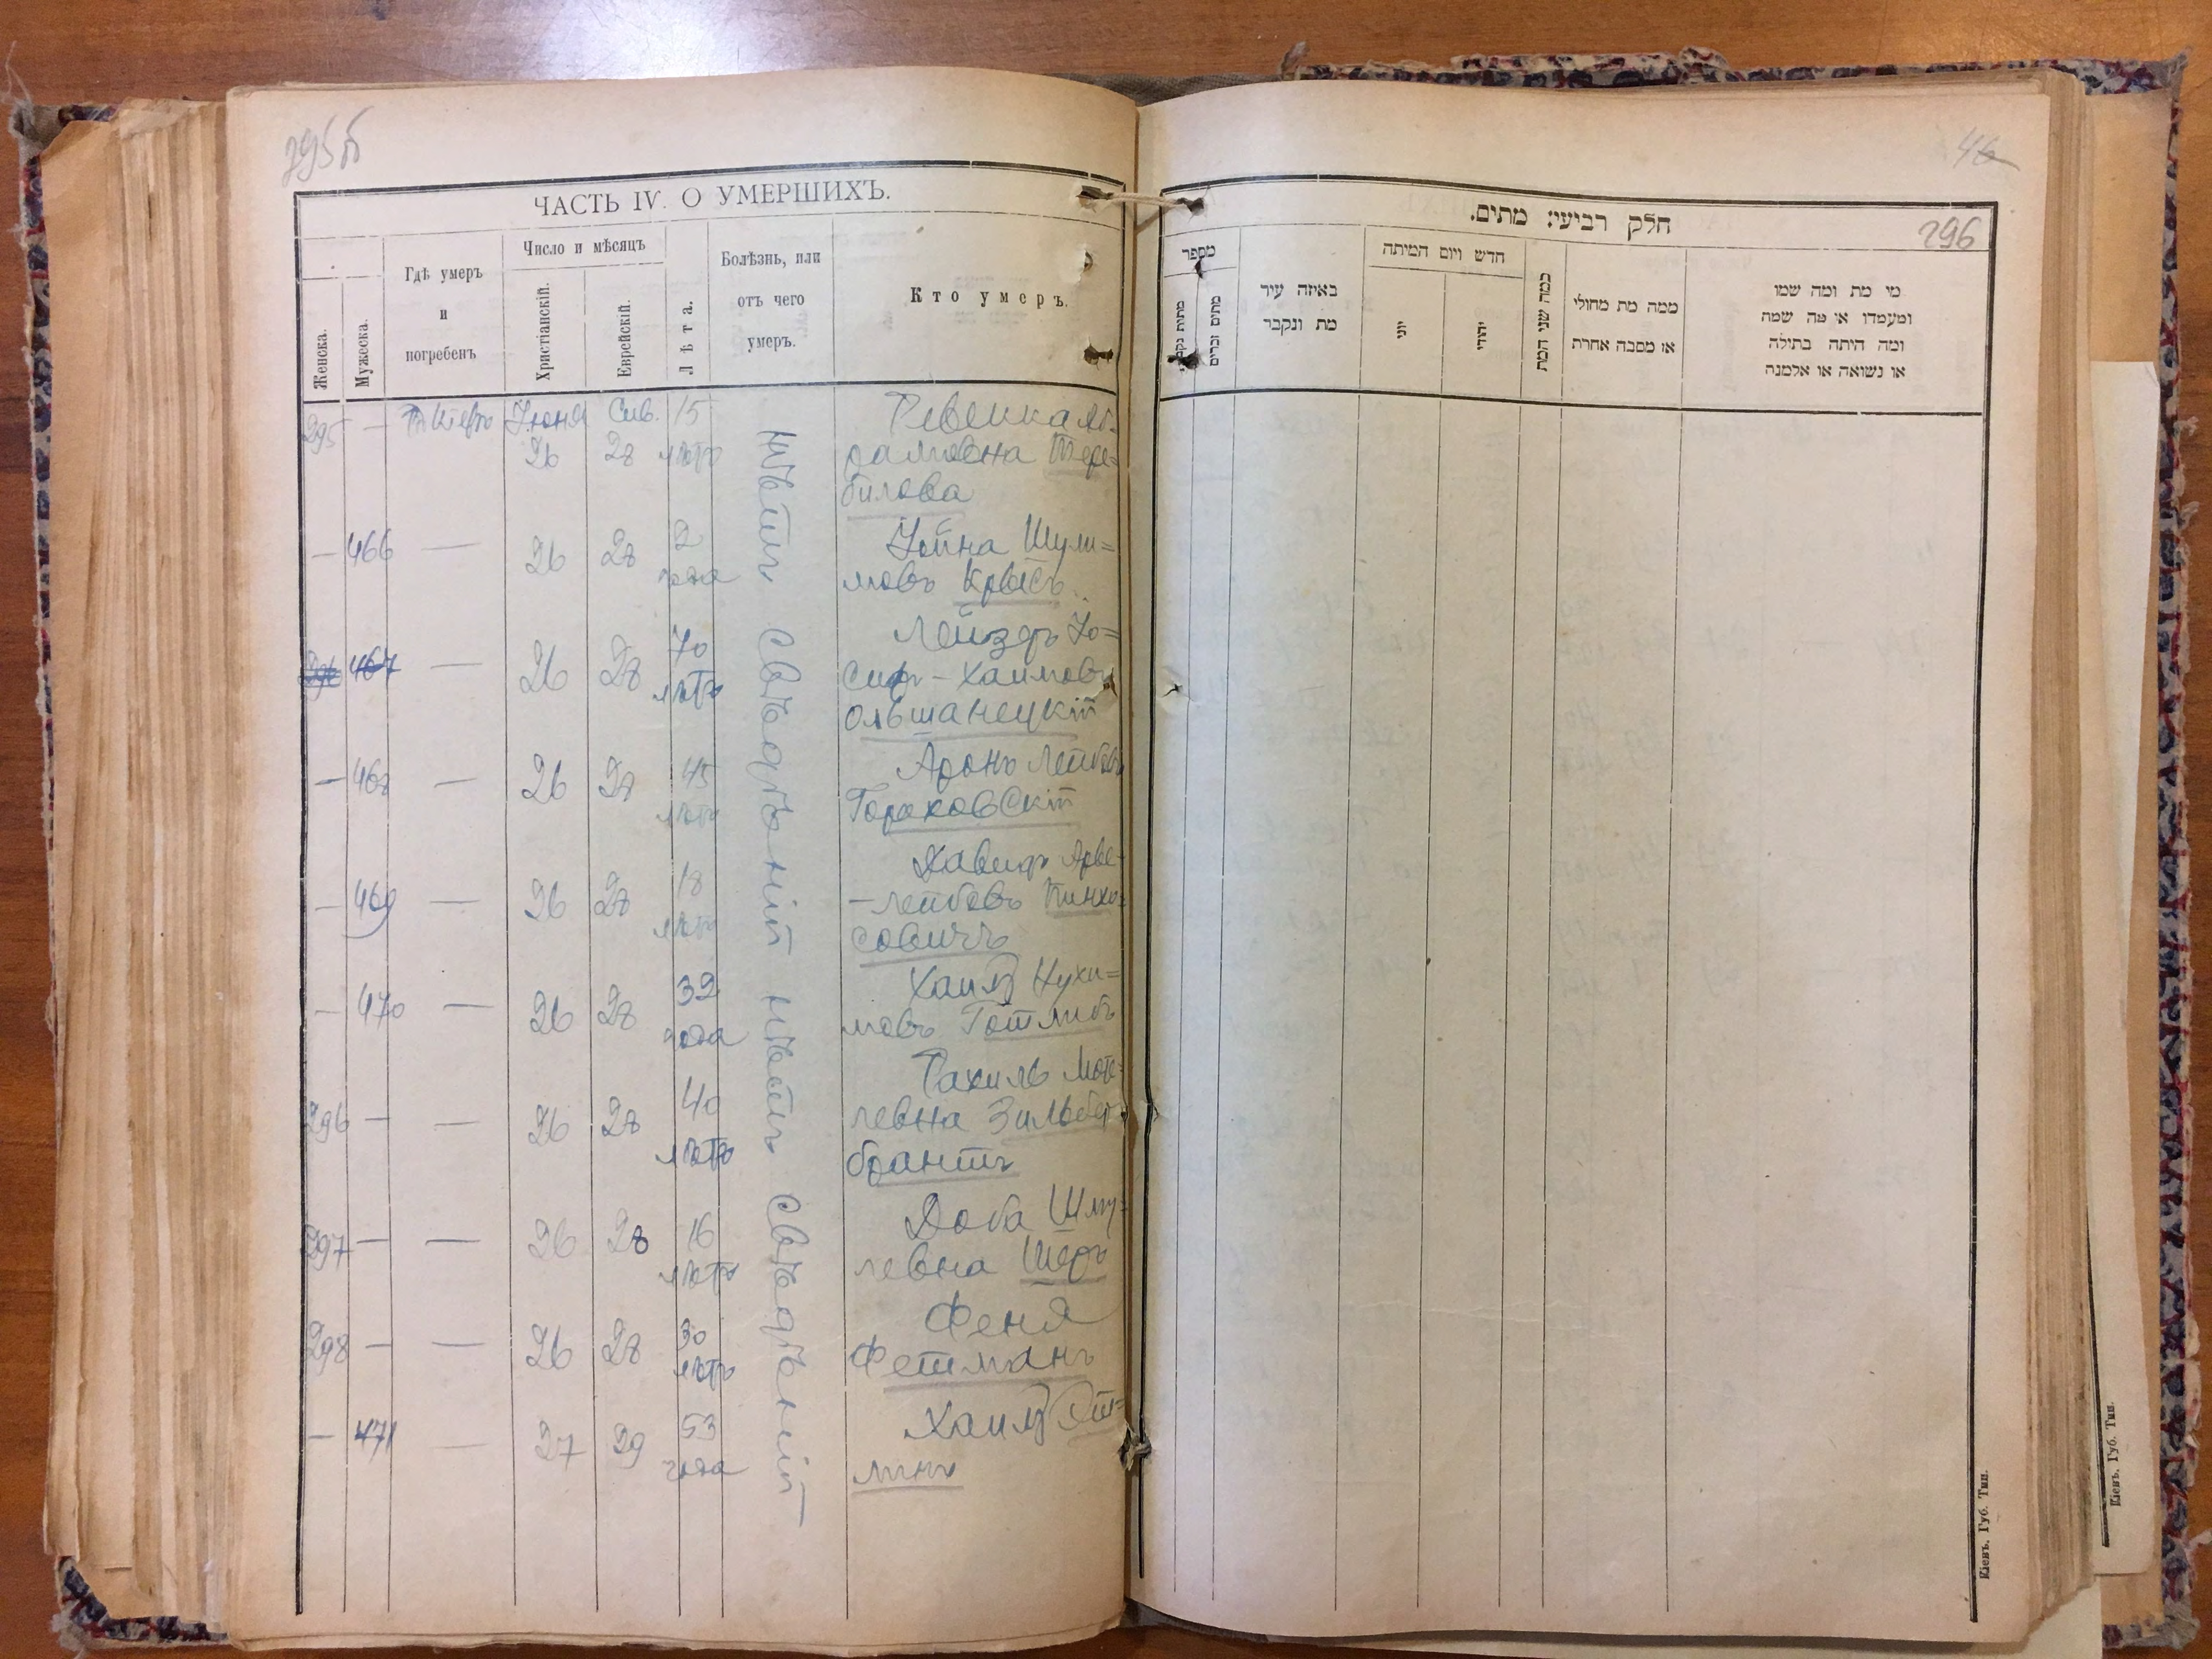 295 б
ЧАСТЬ IV. О УМЕРШИХЪ.
Женска.
Мужеска.
Гдѣ умеръ
и
погребенъ
Число и мѣсяцъ
Христіанскій.
Еврейскій.
Лѣта.
Болѣзнь, или
отъ чего
умеръ.
Кто умеръ.
295 — Іюня Сив. 15 Ревекка Аб-
26 28 лѣтъ рамовна Тере-
билова
— 466 — 26 28 2 Іойна Шули=
года мовъ Крысъ
467 — 26 28 70 Лейзеръ Іо=
лѣтъ сифъ-Хаимовъ
Ольшанецкій
— 468 — 26 28 45 Аронъ Лейбовъ
лѣтъ Гороховскій
— 469 — 26 28 18 Давидъ
лѣтъ -Лейбовъ Пинхо=
совичъ
— 470 — 26 28 32 Хаимъ Нухи=
года мовъ Готлибъ
296 — — 26 28 40 Рахиль Мот-
лѣтъ левна Зильбер-
брантъ
297 — — 26 28 16 Доба Шму-
лѣтъ левна Шеръ
298 — — 26 28 30 Феня
лѣтъ Фетманъ
— 471 — 27 29 53 Хаимъ
года
нѣтъ свѣдѣній нѣтъ свѣдѣній
46
296
חלק רביעי: מתים.
מספר
מתות נקבות
מתים זכרים
באיזה עיר
מת ונקבר
חדש ויום המיתה
יוני
יהודי
כמה שני המת
ממה מת מחולי
או מסבה אחרת
מי מת ומה שמו
ומעמדו או מה שמה
ומה היתה בתולה
או נשואה או אלמנה
Кіевъ. Губ. Тип.
Кіевъ. Губ. Тип.